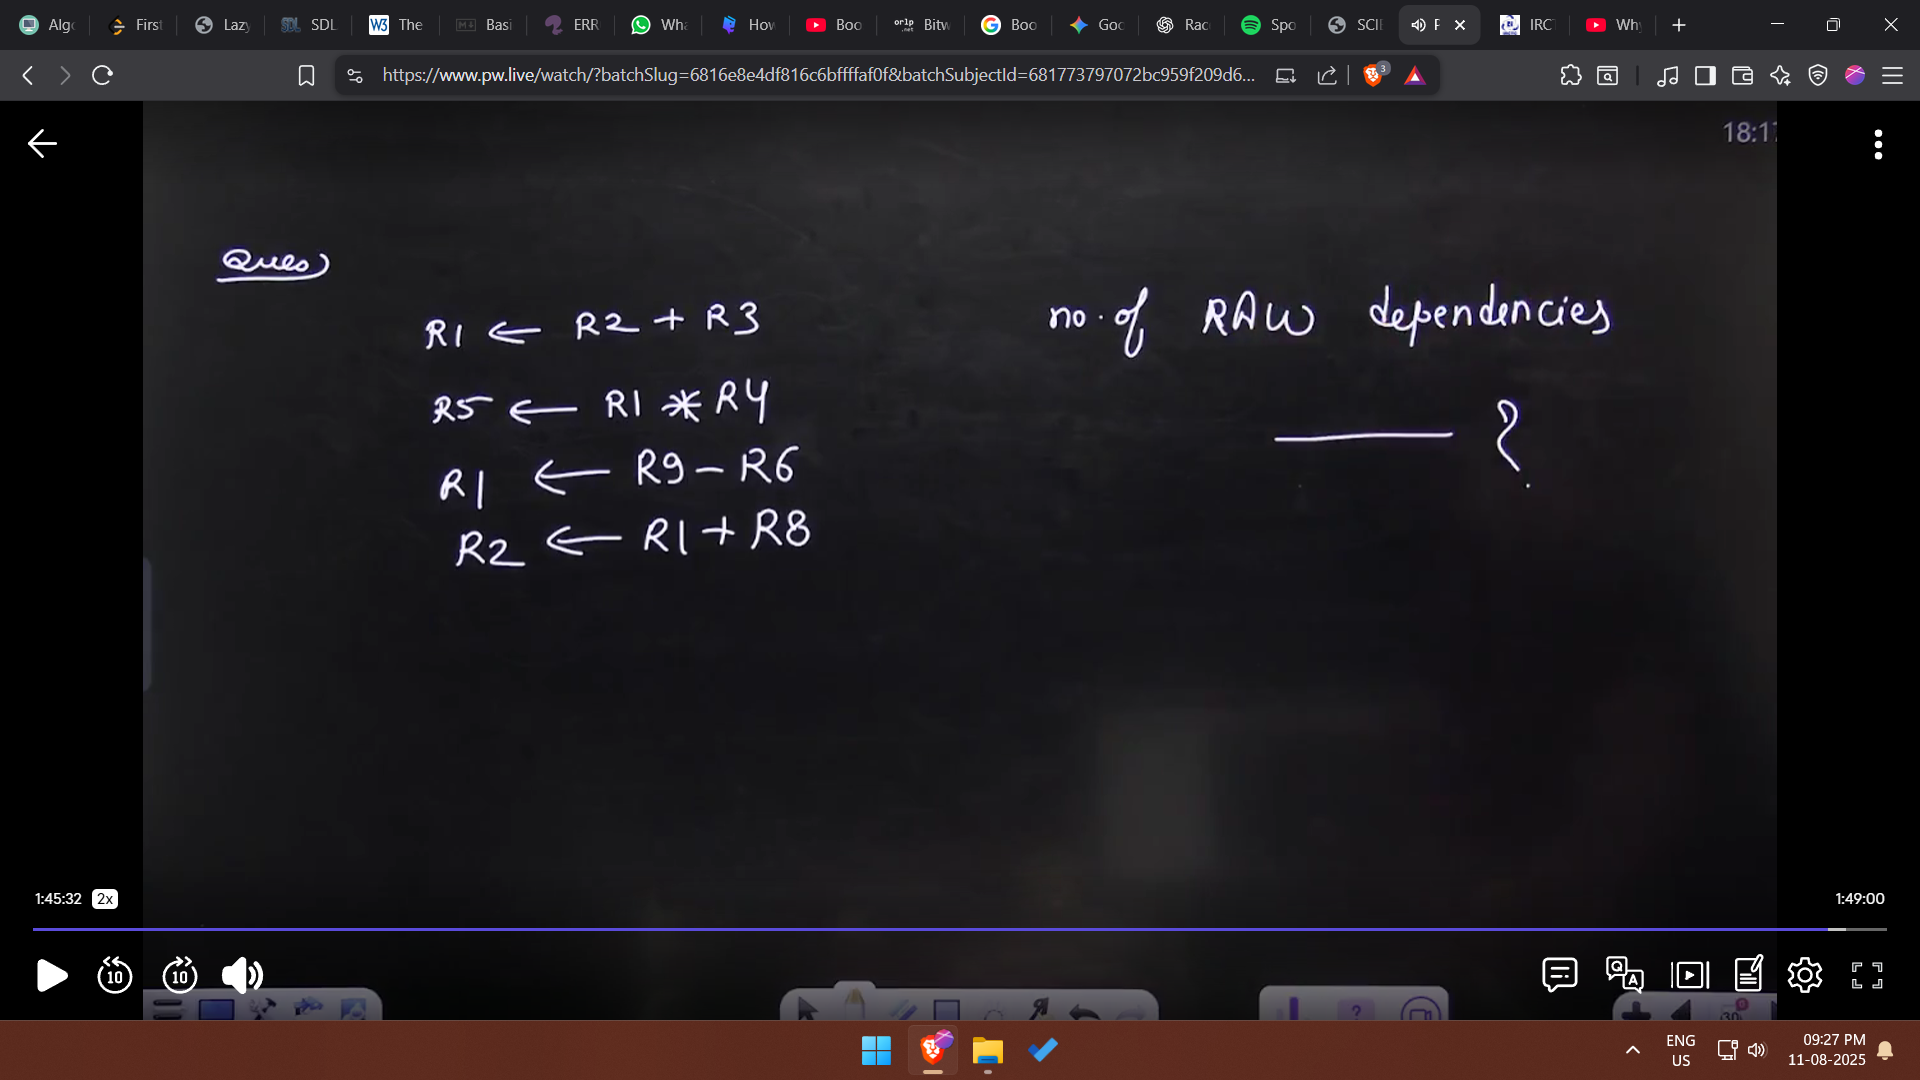 Algo
First
Lazy
SDL
W3 The
Basi
ERR
Wha
How
Boo
orlp .net Bitw
Boo
Goo
Rac
Spo
SCIE
IRCT
Why
https://www.pw.live/watch/?batchSlug=6816e8e4df816c6bffffaf0f&batchSubjectId=681773797072bc959f209d6...
3
18:17
Ques
R1 ← R2 + R3
R5 ← R1 * R4
R1 ← R9 - R6
R2 ← R1 + R8
no. of RAW dependencies
______ ?
1:45:32 2x
1:49:00
10
10
Q A
ENG
US
09:27 PM
11-08-2025